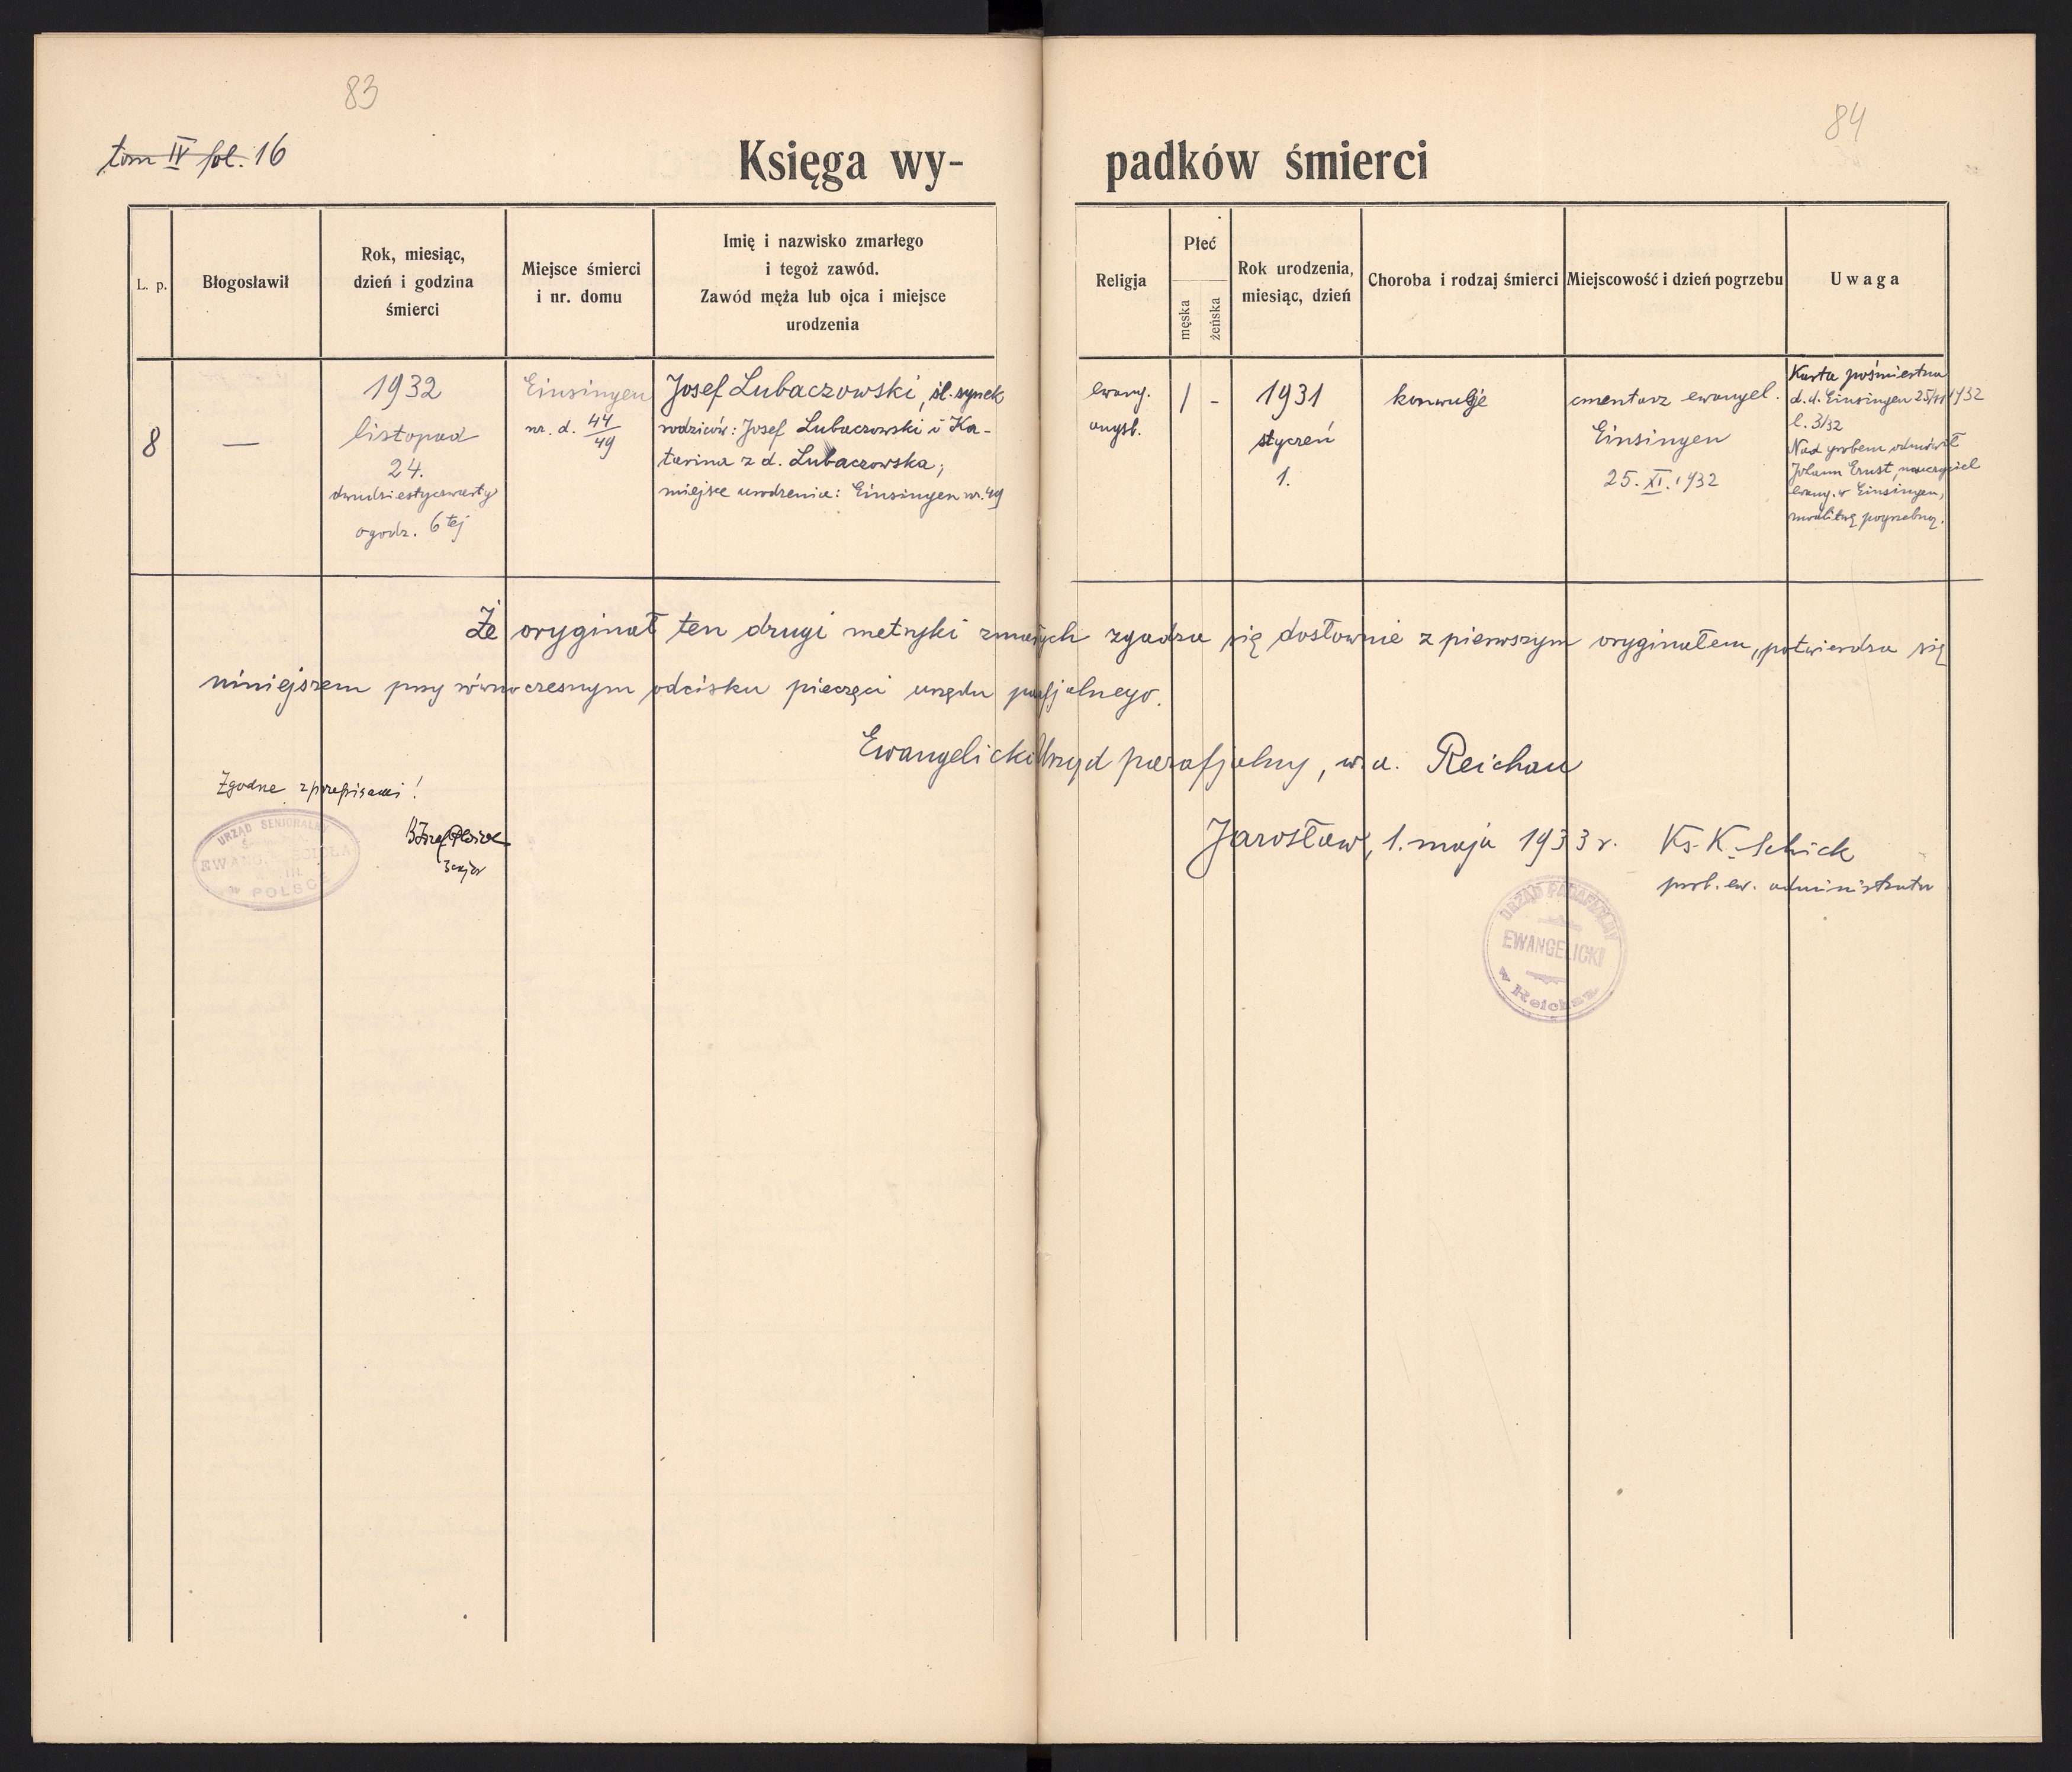 83
84
tom IV fol. 16
Księga wy-
padków śmierci
L. p.
Błogosławił
Rok, miesiąc,
dzień i godzina
śmierci
Miejsce śmierci
i nr. domu
Imię i nazwisko zmarłego
i tegoż zawód.
Zawód męża lub ojca i miejsce
urodzenia
Religja
Płeć
męska
żeńska
Rok urodzenia,
miesiąc, dzień
Choroba i rodzaj śmierci
Miejscowość i dzień pogrzebu
Uwaga
8
—
1932
listopad
24.
dwudziestyczwarty
o godz. 6tej
Einsingen
nr. d. 44/49
Josef Lubaczowski, śl. synek
rodziców: Josef Lubaczowski i Ka-
tarina z d. Lubaczowska;
miejsce urodzenia: Einsingen nr. 49
ewang.
augsb.
1
-
1931
styczeń
1.
konwulsje
cmentarz ewangel.
Einsingen
25. XI. 1932
Karta pośmiertna
d. d. Einsingen 25/XI 1932
l. 3/32
Nad grobem odmówił
Johann Ernst, nauczyciel
ewang. w Einsingen,
modlitwę pogrzebną.
Że oryginał ten drugi metryki zmarłych zgadza się dosłownie z pierwszym oryginałem, potwierdza się
niniejszem przy równoczesnym odcisku pieczęci urzędu parafjalnego.
Ewangelicki Urząd parafjalny, w. a. Reichau
Jarosław, 1. maja 1933 r. Ks. K. Schick
prob. ew. administrator
Zgodne z przepisami!
URZĄD SENIORALNY
EWANG. KOŚCIOŁA
w POLSCE
URZĄD PARAFIALNY
EWANGELICKI
w Reichau